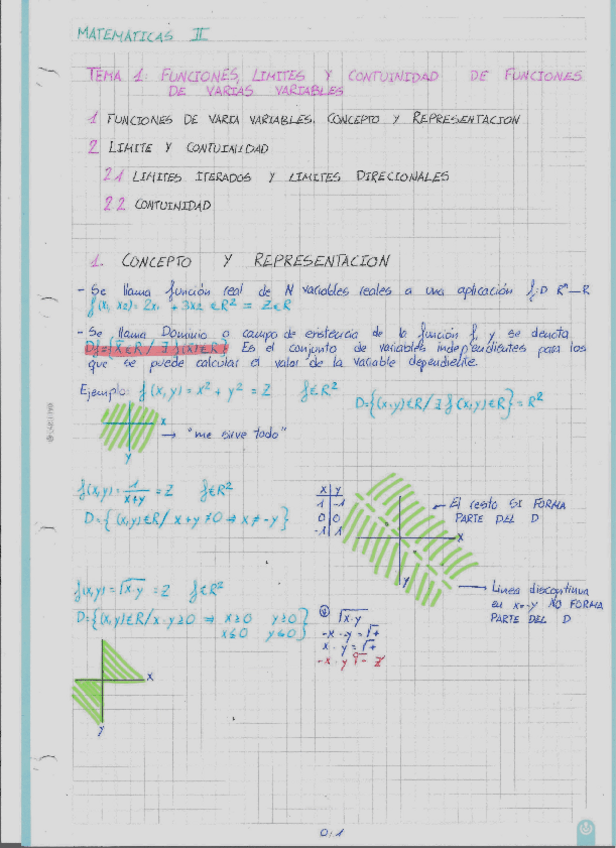 MATEMATICAS II
TEMA 1: FUNCIONES, LIMITES Y CONTUINIDAD DE FUNCIONES
DE VARIAS VARIABLES
1 FUNCIONES DE VARIA VARIABLES. CONCEPTO Y REPRESENTACION
2 LIMITE Y CONTUINIDAD
2.1 LIMITES ITERADOS Y LIMITES DIRECIONALES
2.2 CONTUINIDAD
1. CONCEPTO Y REPRESENTACION
- Se llama función real de N variables reales a una aplicación f: D Rⁿ—R
f(x₁ x₂) = 2x₁ + 3x₂ ∈ R² = Z ∈ R
- Se llama Dominio o campo de existencia de la función f, y se denota
Df = {x̄ ∈ R / ∃ f(x) ∈ R} Es el conjunto de variables independientes para las
que se puede calcular el valor de la variable dependiente.
Ejemplo: f(x,y) = x² + y² = Z f ∈ R²
D={(x,y)∈R/∃ f(x,y)∈R}=R²
x
y
→ "me sirve todo"
f(x,y) = 1/x+y = Z f ∈ R²
D = {(x,y)∈R/ x+y ≠ 0 ⇒ x ≠ -y}
x y
1 -1
0 0
-1 1
x
y
El resto SI FORMA
PARTE DEL D
Linea discontinua
en x=-y NO FORMA
PARTE DEL D
f(x,y) = √x·y = Z f ∈ R²
D={(x,y)∈R/x·y≥0 ⇒ x≥0 y≥0
x≤0 y≤0}
√x·y
-x·-y = √+
x·y = √+
-x·y √- = Z
x
y
0:1